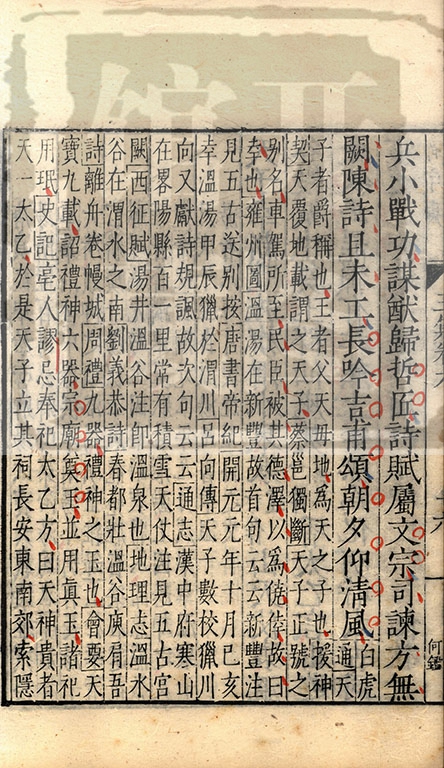 兵小戰功謀猷歸哲匠詩賦屬文宗司諫方無
闕陳詩且未工長吟吉甫頌朝夕仰清風白虎通天
子者爵稱也王者父天母地為天之子也援神
契天覆地載謂之天子蔡邕獨斷天子正號之
別名車駕所至民臣被其德澤以為僥倖故曰
幸也雍州圖溫湯在新豐故首句云云新豐注
見五古送別按唐書帝紀開元元年十月己亥
幸溫湯甲辰獵於渭川呂向傳天子數校獵川
向又獻詩規諷故次句云云通志漢中府寒山
在畧陽縣百一里常有積雪天仗注見五古宮
闕西征賦湯井溫谷注即溫泉也地理志溫水
谷在渭水之南劉義恭詩春都壯溫谷庾肩吾
詩離舟卷幔城周禮九器禮神之玉也會要天
寶九載詔禮神六器宗廟奠玉並用真玉諸祀
用珉史記亳人謬忌奉祀太乙方曰天神貴者
天一太乙於是天子立其祠長安東南郊索隱
何鑑